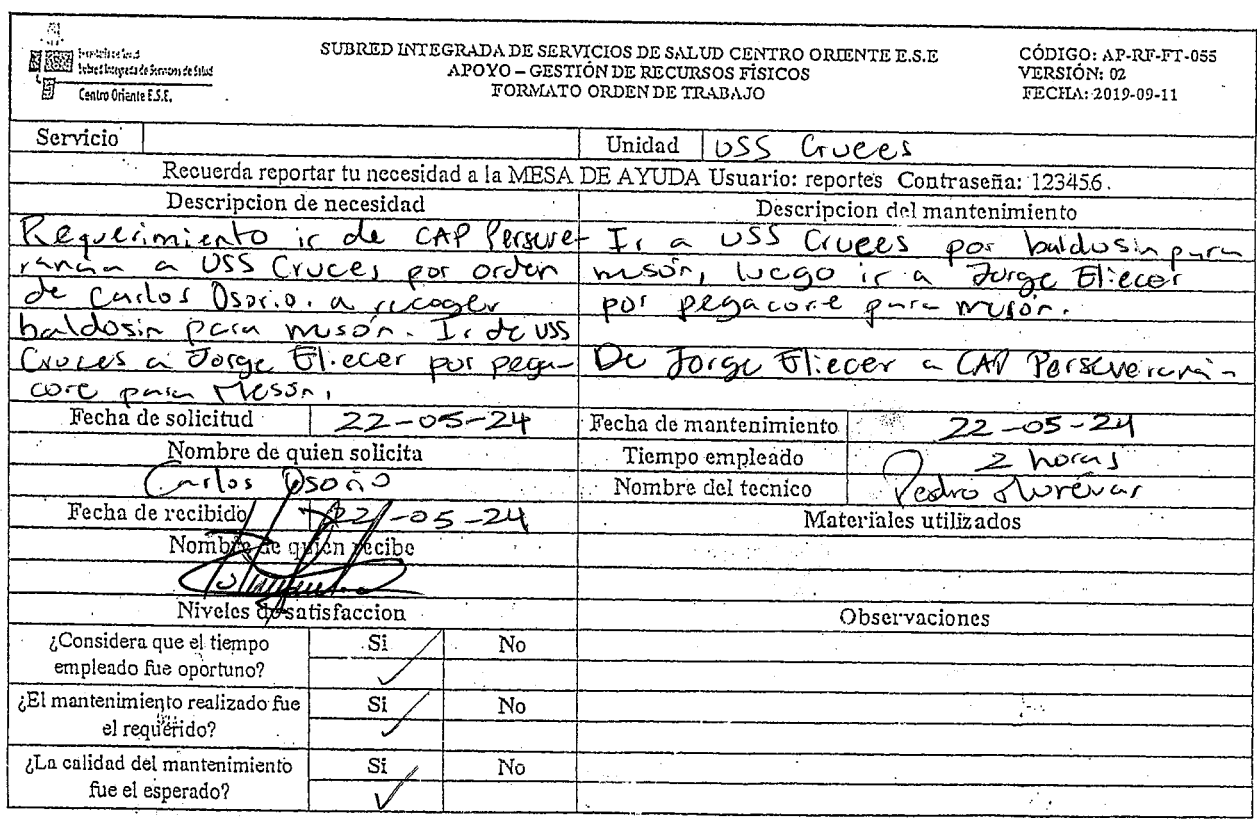 Secretaría de Salud
Subred Integrada de Servicios de Salud
Centro Oriente E.S.E.
SUBRED INTEGRADA DE SERVICIOS DE SALUD CENTRO ORIENTE E.S.E
APOYO – GESTIÓN DE RECURSOS FÍSICOS
FORMATO ORDEN DE TRABAJO
CÓDIGO: AP-RF-FT-055
VERSIÓN: 02
FECHA: 2019-09-11
Servicio
Unidad USS Cruces
Recuerda reportar tu necesidad a la MESA DE AYUDA Usuario: reportes Contraseña: 123456.
Descripcion de necesidad
Requerimiento ir de CAP Perseve-
rancia a USS Cruces por orden
de Carlos Osorio. a recoger
baldosin para meson. Ir de USS
Cruces a Jorge Eliecer por pega-
core para Meson.
Descripcion del mantenimiento
Ir a USS Cruces por baldosin para
meson, luego ir a Jorge Eliecer
por pegacore para meson.
De Jorge Eliecer a CAP
Fecha de solicitud 22-05-24
Fecha de mantenimiento 22-05-24
Nombre de quien solicita
Carlos Osorio
Tiempo empleado 2 horas
Nombre del tecnico Pedro
Fecha de recibido 22-05-24
Materiales utilizados
Nombre de quien recibe
Niveles de satisfaccion
Observaciones
¿Considera que el tiempo
empleado fue oportuno?
Si No
✓
¿El mantenimiento realizado fue
el requerido?
Si No
✓
¿La calidad del mantenimiento
fue el esperado?
Si No
✓